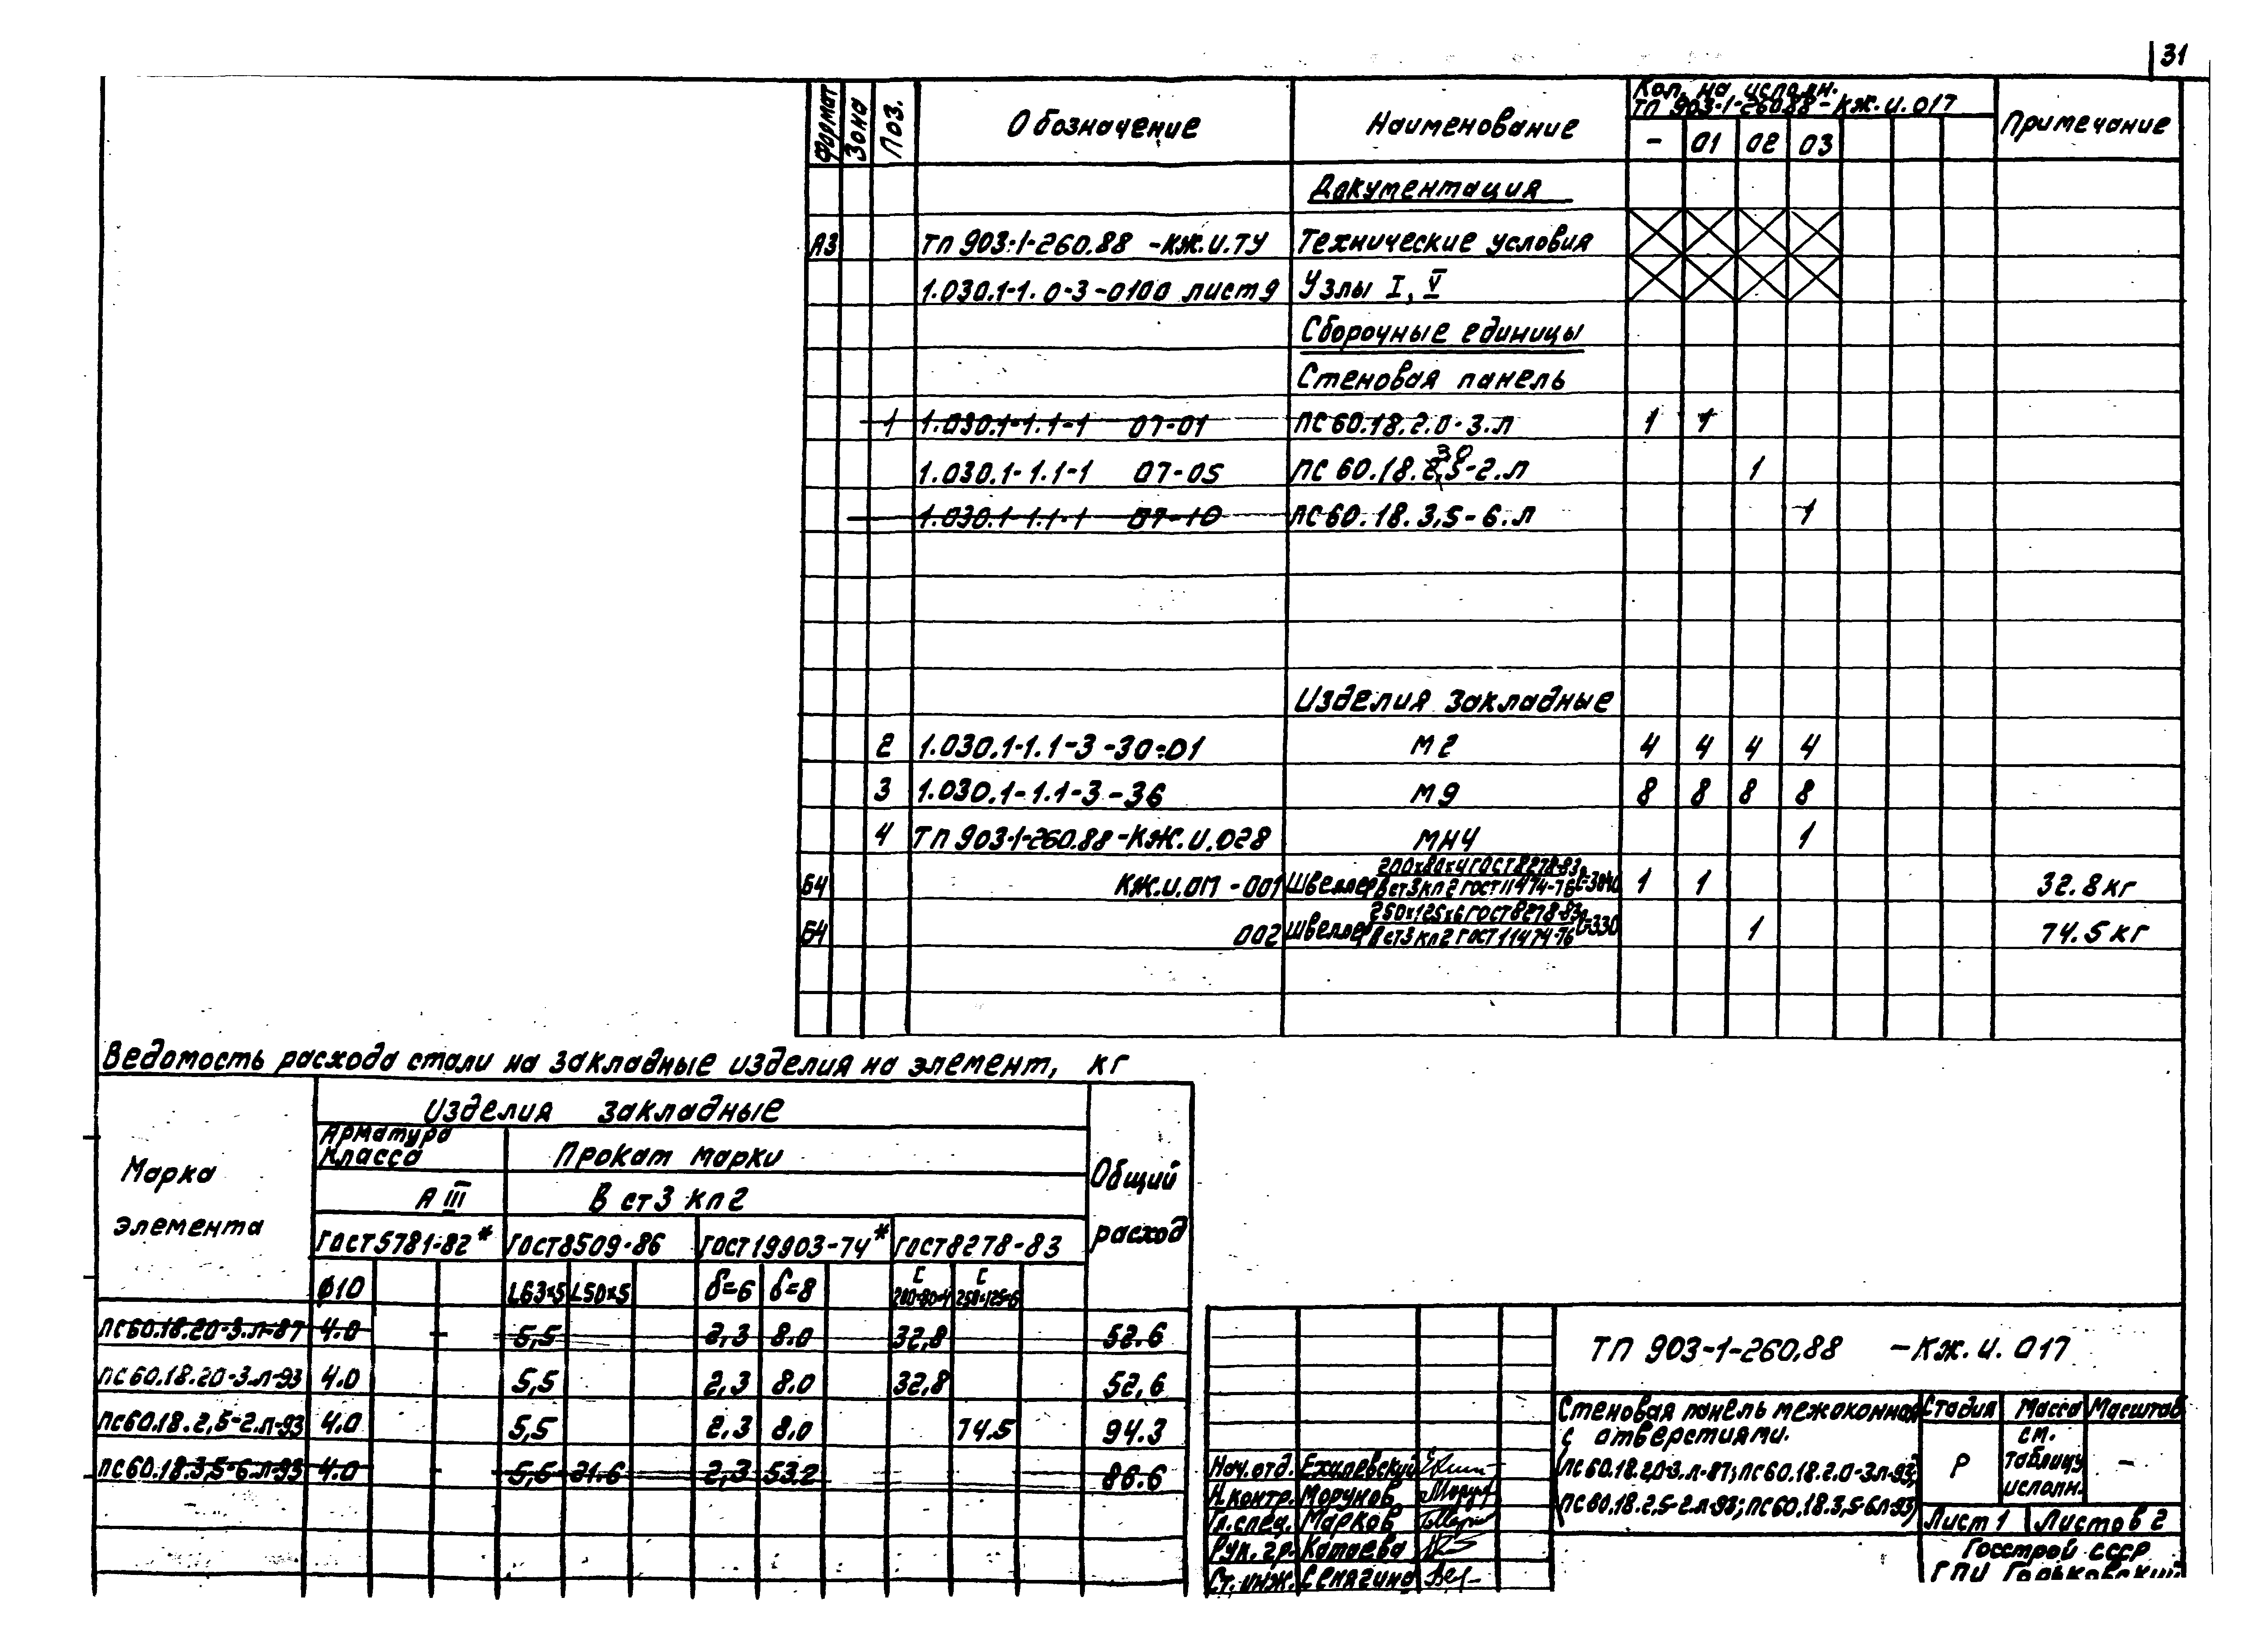 31
Формат Зона Поз. Обозначение Наименование Кол. на исполн. Примечание
ТП 903-1-260.88-КЖ.И.017
- 01 02 03
Документация
А3 ТП 903-1-260.88 -КЖ.И.ТУ Технические условия
1.030.1-1.0-3-0100 лист 9 Узлы I, V
Сборочные единицы
Стеновая панель
1 1.030.1-1.1-1 07-01 ПС 60.18.2.0-3.Л 1 1
1.030.1-1.1-1 07-05 ПС 60.18. -2.Л 1
1.030.1-1.1-1 07-10 ПС 60.18.3,5-6.Л 1
Изделия закладные
2 1.030.1-1.1-3-30-01 М2 4 4 4 4
3 1.030.1-1.1-3-36 М9 8 8 8 8
4 ТП 903-1-260.88-КЖ.И.028 МН4 1
Б4 КЖ.И.017-001 Швеллер 200х80х4 ГОСТ 8278-83 1 1 32.8 кг
Вст3кп2 ГОСТ 11474-76
Б4 002 Швеллер 250х125х6 ГОСТ 8278-83 1 74.5 кг
Вст3кп2 ГОСТ 11474-76
Ведомость расхода стали на закладные изделия на элемент, кг
Марка элемента Изделия закладные Общий расход
Арматура класса Прокат марки
А III Вст3кп2
ГОСТ 5781-82* ГОСТ 8509-86 ГОСТ 19903-74* ГОСТ 8278-83
ϕ10 L63х5 L50х5 δ=6 δ=8 С 200×80×4 С 250×125×6
ПС60.18.20-3.Л-87 4.0 - 5,5 2,3 8.0 32,8 52.6
ПС60.18.20-3.Л-93 4.0 5,5 2,3 8.0 32,8 52,6
ПС60.18.2,5-2.Л-93 4.0 5,5 2.3 8.0 74.5 94.3
ПС60.18.3,5-6.Л-93 4.0 - 5,5 21.6 2,3 53.2 86.6
ТП 903-1-260.88 -КЖ.И.017
Стеновая панель межоконная
с отверстиями.
(ПС60.18.2.0-3.Л-87; ПС60.18.2.0-3Л-93;
ПС60.18.2,5-2.Л-93; ПС60.18.3,5-6Л-93)
Стадия Масса Масштаб
Р см. таблицу исполн. -
Лист 1 Листов 2
Госстрой СССР
ГПИ Горьковский
Нач.отд. Ехилевский
Н.контр. Морунов
Гл.спец. Марков
Рук.гр. Катаева
Ст.инж. Сенягина